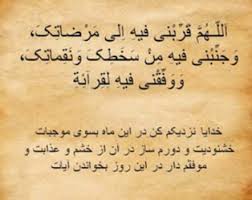 اَللّـهُمَّ قَرِّبْنی فیهِ اِلی مَرْضاتِکَ،
وَجَنِّبْنی فیهِ مِنْ سَخَطِکَ وَنَقِماتِکَ،
وَوَفِّقْنی فیهِ لِقِرآئةِ
خدایا نزدیکم کن در این ماه بسوی موجبات
خشنودیت و دورم ساز در ان از خشم و عذابت و
موفقم دار در این روز بخواندن آیات